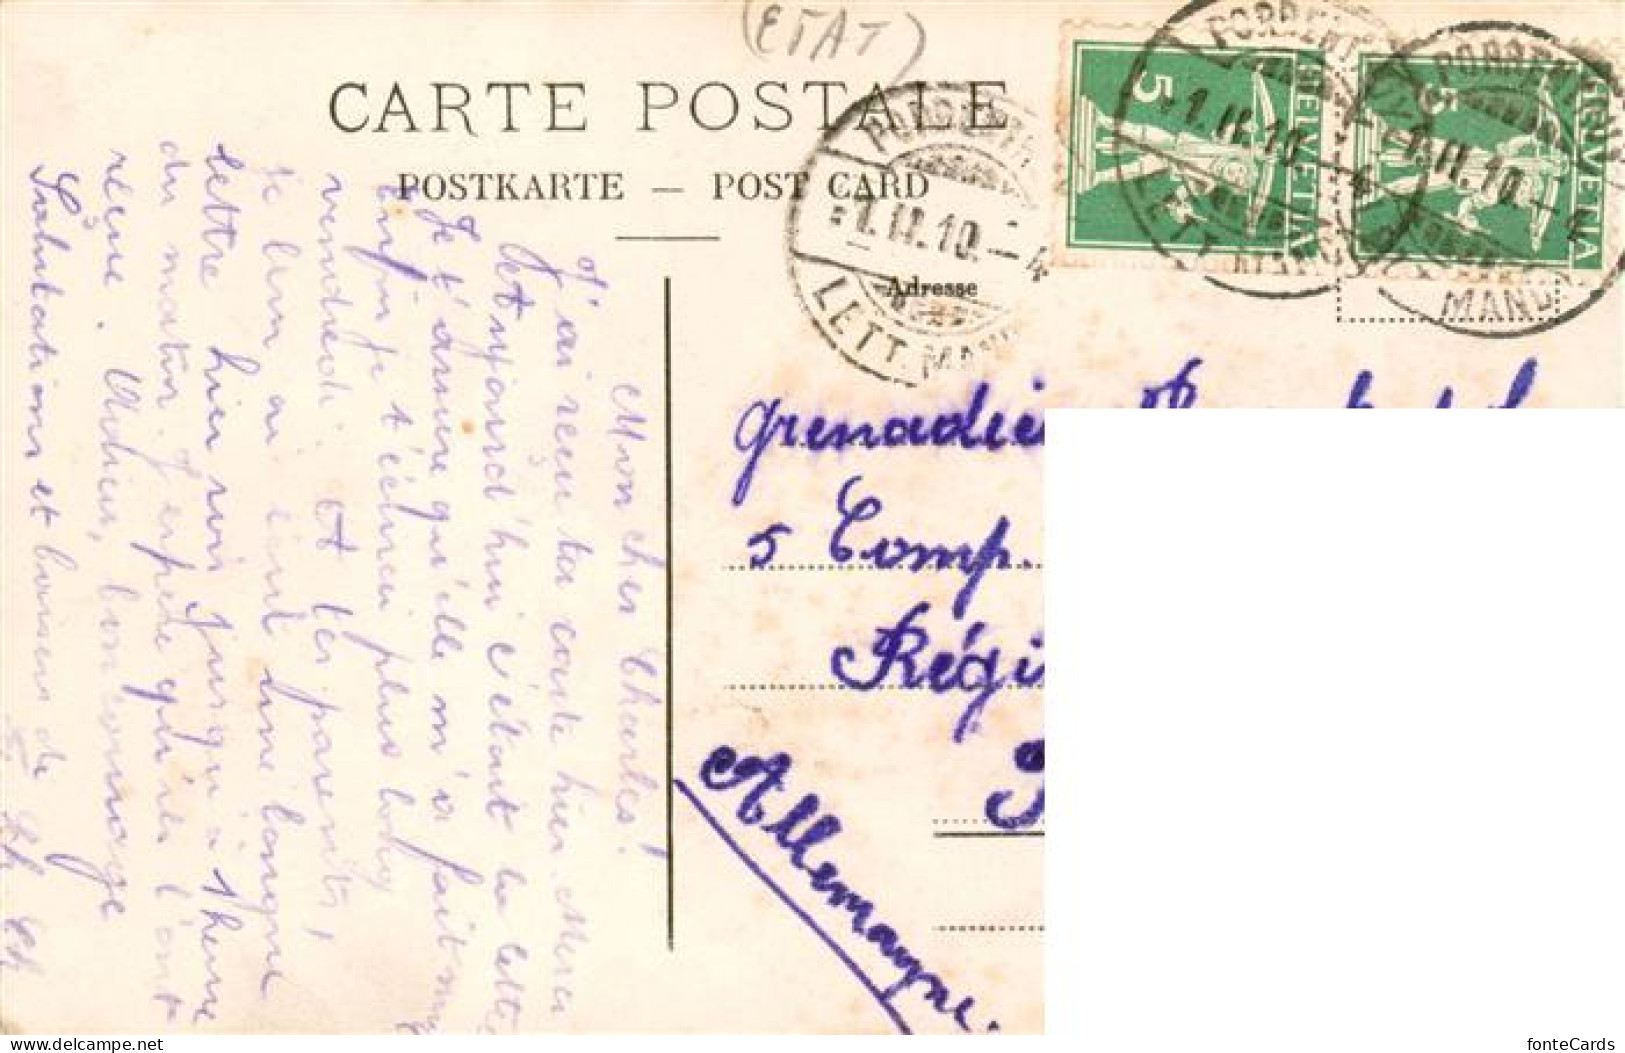 (ETAT)
CARTE POSTALE
POSTKARTE — POST CARD
Adresse
PORRENTR
1.II.10.-4
LETT. MAN
HELVETIA
5
PORRENT
1.II.10.-4
LETT.
HELVETIA
5
PORRENT
1.II.10.-4
MAND
grenadie
5 Comp.
Régi
Allemagne.
Mon cher Charles!
J'ai reçu ta carte hier. Merci
et aujourd'hui c'était la lettre
Je t'assure qu'elle m'a fait
enfin je t'écrirai plus long
vendredi. Et tes parents,
je leur ai écrit une longue
lettre hier soir jusqu'à 1 heure
du matin. J'espère qu'ils l'ont
reçue. Adieu, bon courage
Salutations et baisers de
fonteCards
www.delcampe.net